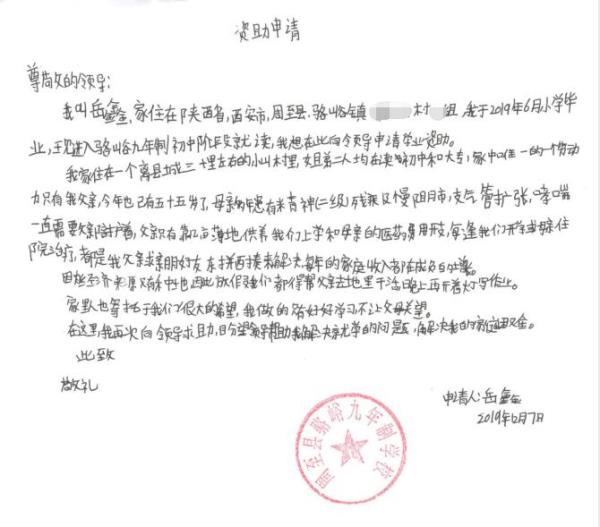 资助申请
尊敬的领导:
我叫岳鑫,家住在陕西省,西安市,周至县.骆峪镇 村 组,我于2019年6月小学毕
业,现进入骆峪九年制初中阶段就读,我想在此向领导申请学业资助。
我家住在一个离县城三十里左右的小山村里,姐弟二人均在读初中和大专,家中唯一的一个劳动
力只有我父亲,今年也已有五十五岁了,母亲患有精神(二级)残疾以及慢阻肺,支气管扩张,哮喘
一直需要父亲,父亲只有靠几亩薄地供养我们上学和母亲的医药费用,每逢我们开学或母亲住
院治疗,都是我父亲求亲朋好友东拼西凑来解决,每年的家庭收入都
因此放假我们都得帮父亲去地里干活,晚上再开着灯写作业。
家里也寄托于我们很大的希望,我做的只有好好学习不让父母失望。
在这里我再次向领导求助,希望领导帮助我解决就学的问题,解决我的家庭
此致
敬礼
申请人:岳鑫
2019年12月7日
周至县骆峪九年制学校